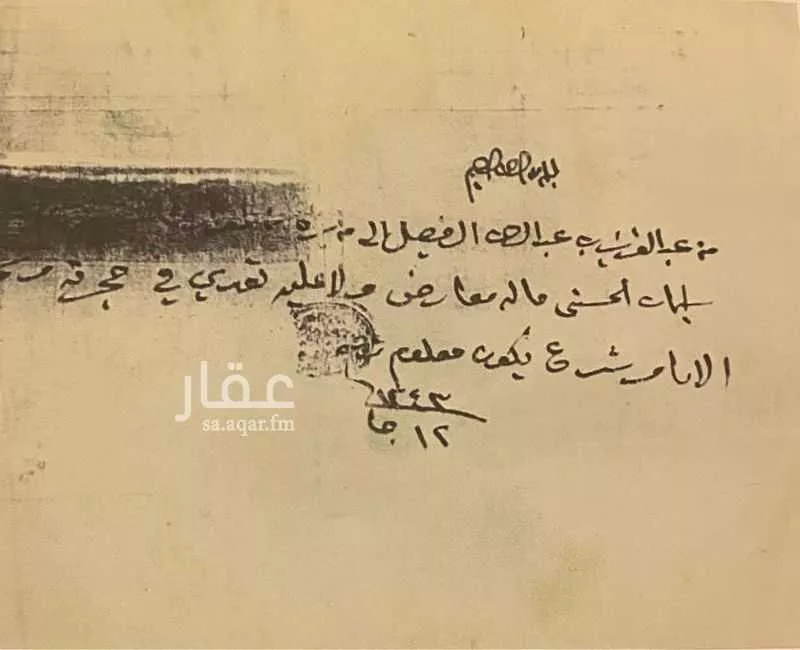 بسم الله الرحمن الرحيم
من عبدالعزيز بن عبدالرحمن الفيصل الى من يراه
سليمان الحسني ماله معارض ولا عليه تعدي في حجرته
الا بامر شرع يكون معلوم
١٣٤٣
١٢ جا
عقار
sa.aqar.fm